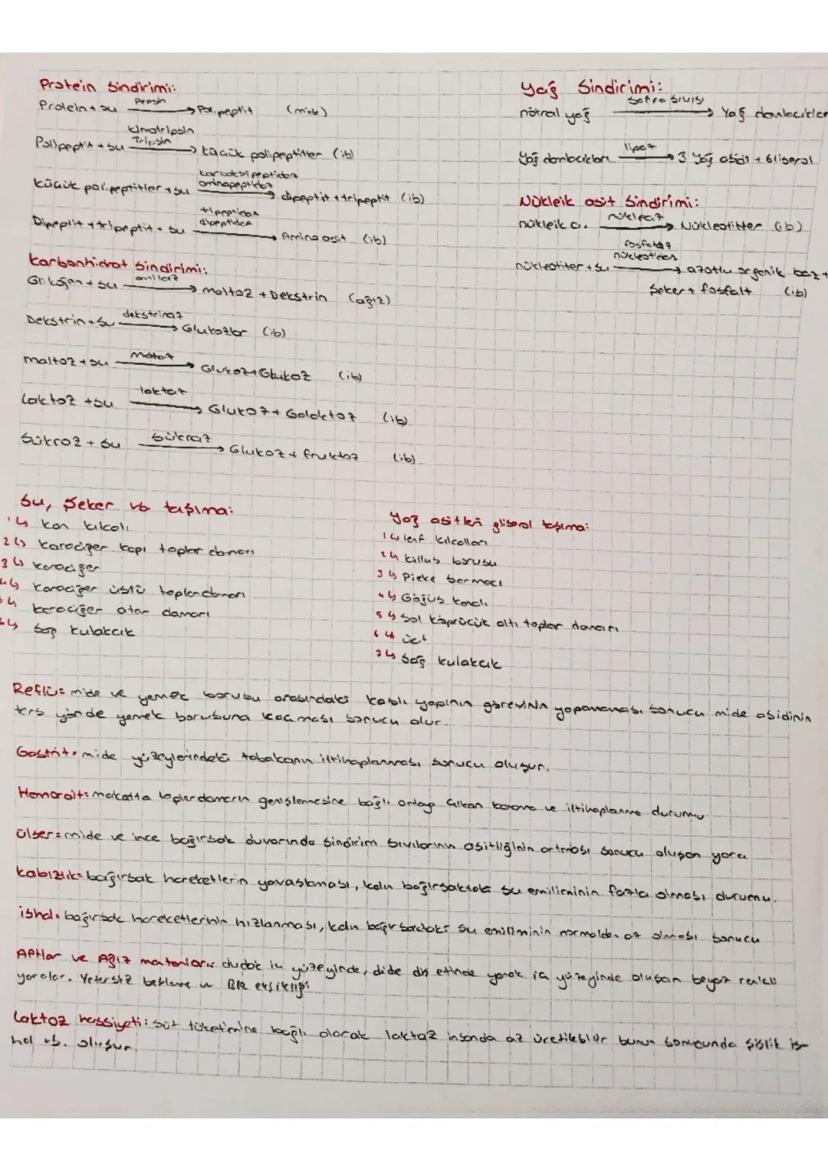 Protein Sindirimi:
Pepsin
Protein + su → Polipeptit (mide)
Kimotripsin
Tripsin
Polipeptit + su → küçük polipeptitler (ib)
karboksipeptidaz
aminopeptidaz
küçük polipeptitler + su → dipeptit + tripeptit (ib)
tripeptidaz
dipeptidaz
Dipeptit + tripeptit + su → Amino asit (ib)
Karbonhidrat Sindirimi:
amilaz
Glikojen + su → maltoz + Dekstrin (ağız)
dekstrinaz
Dekstrin + su → Glukozlar (ib)
maltaz
maltoz + su → Glukoz + Glukoz (ib)
laktaz
Laktoz + su → Glukoz + Galaktoz (ib)
sükraz
Sükroz + su → Glukoz + fruktoz (ib)
Yağ Sindirimi:
Safra sıvısı
nötral yağ → Yağ damlacıkları
lipaz
Yağ damlacıkları → 3 Yağ asidi + Gliserol
Nükleik asit Sindirimi:
nükleaz
nükleik a. → Nükleotitler (ib)
fosfataz
nükleotidaz
nükleotitler + su → azotlu organik baz +
Şeker + fosfat (ib)
Su, Şeker vb taşıma:
1↳ kan kılcalı
2↳ karaciğer kapı toplar damarı
3↳ karaciğer
4↳ karaciğer üstü toplardamarı
5↳ karaciğer atar damarı
6↳ Sağ kulakcık
Yağ asitleri gliserol taşıma:
1↳ lenf kılcalları
2↳ killus borusu
3↳ Peke sarnıcı
4↳ Göğüs kanalı
5↳ sol köprücük altı toplar damarı
6↳ üct
7↳ Sağ kulakcık
Reflü = mide ve yemek borusu arasındaki kaslı yapının görevini yapamaması sonucu mide asidinin
ters yönde yemek borusuna kaçması sonucu olur.
Gastrit = mide yüzeylerindeki tabakanın iltihaplanması sonucu oluşur.
Hemoroit = makatta toplardamarın genişlemesine bağlı ortaya çıkan kanama ve iltihaplanma durumu
Ülser = mide ve ince bağırsak duvarında sindirim sıvılarının asitliğinin artması sonucu oluşan yara
kabızlık = bağırsak hareketlerin yavaşlaması, kalın bağırsaktaki su emiliminin fazla olması durumu.
ishal = bağırsak hareketlerinin hızlanması, kalın bağırsaktaki su emiliminin normalden az olması sonucu
Aftlar ve Ağız mantarları: dudak iç yüzeyinde, dilde diş etinde yanak iç yüzeyinde oluşan beyaz renkli
yaralar. Yetersiz beslenme ve B12 eksikliği
Laktoz hassiyeti: süt tüketimine bağlı olarak laktaz insanda az üretilebilir bunun sonucunda şişlik is-
hal vb. oluşur.